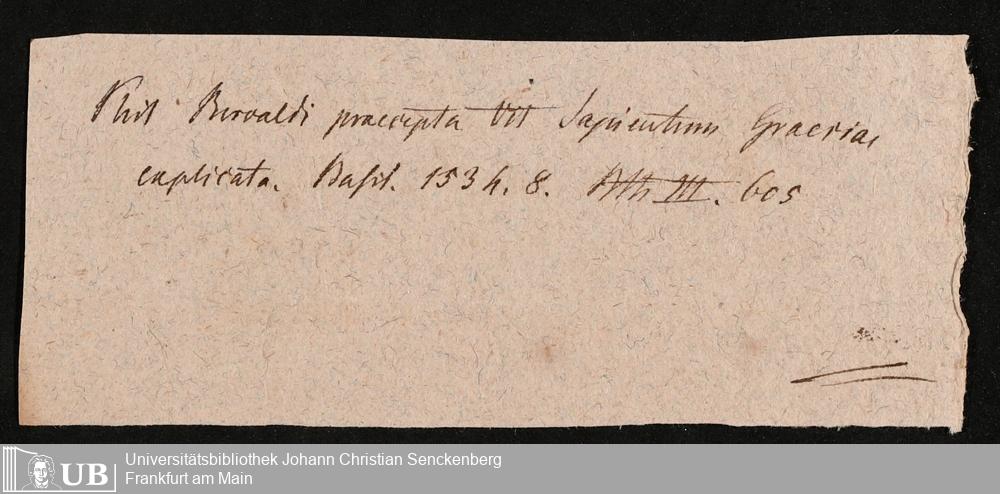 Phil Beroaldi praecepta VII Sapientum Graeciae
explicata. Basil. 1534. 8. Ath III. 605
UB
Universitätsbibliothek Johann Christian Senckenberg
Frankfurt am Main